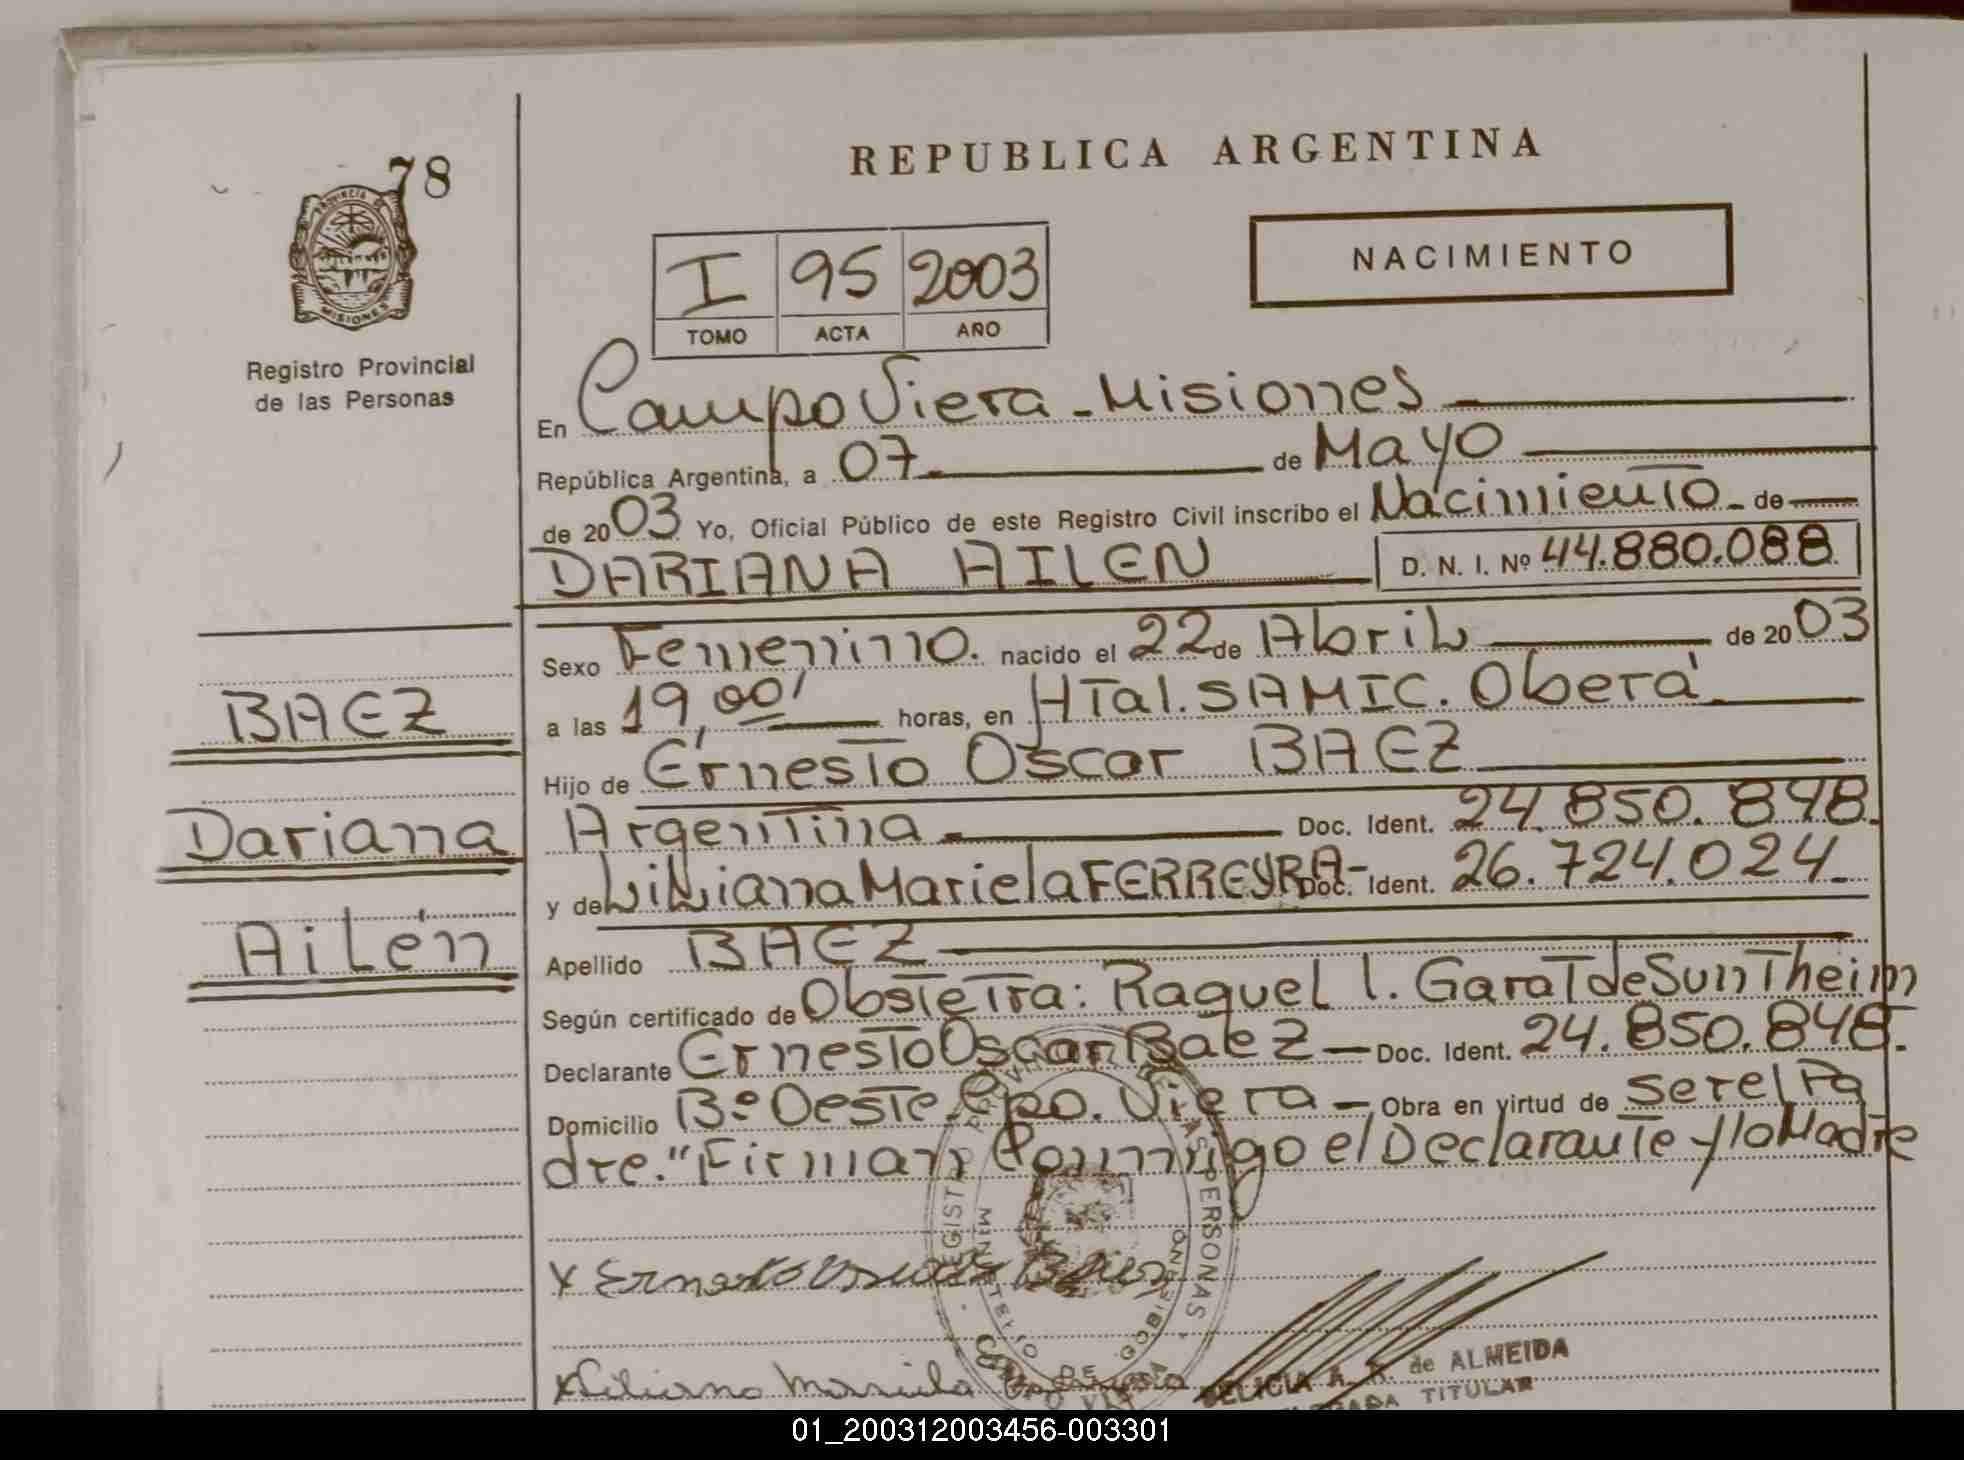 78
PROVINCIA DE
MISIONES
Registro Provincial
de las Personas
BAEZ
Dariana
Ailén
REPUBLICA ARGENTINA
NACIMIENTO
I 95 2003
TOMO ACTA AÑO
En Campo Viera - Misiones
República Argentina, a 07 de Mayo
de 2003 Yo, Oficial Público de este Registro Civil inscribo el Nacimiento - de
DARIANA AILEN D. N. I. Nº 44.880.088
Sexo Femenino. nacido el 22 de Abril de 2003
a las 19,00' horas, en HTal. SAMIC. Oberá
Hijo de Ernesto Oscar BAEZ
Argentina Doc. Ident. 24.850.848.
y de Liliana Mariela FERREYRA- Doc. Ident. 26.724.024
Apellido BAEZ
Según certificado de Obstetra: Raquel l. Garat de Suntheim
Declarante Ernesto Oscar Baez - Doc. Ident. 24.850.848.
Domicilio Bº Oeste Cpo. Viera - Obra en virtud de ser el Pa
dre." Firman Conmigo el Declarante y la Madre
x Ernesto Oscar Baez
x Liliana Mariela
DELICIA A. R. de ALMEIDA
TITULAR
01_200312003456-003301